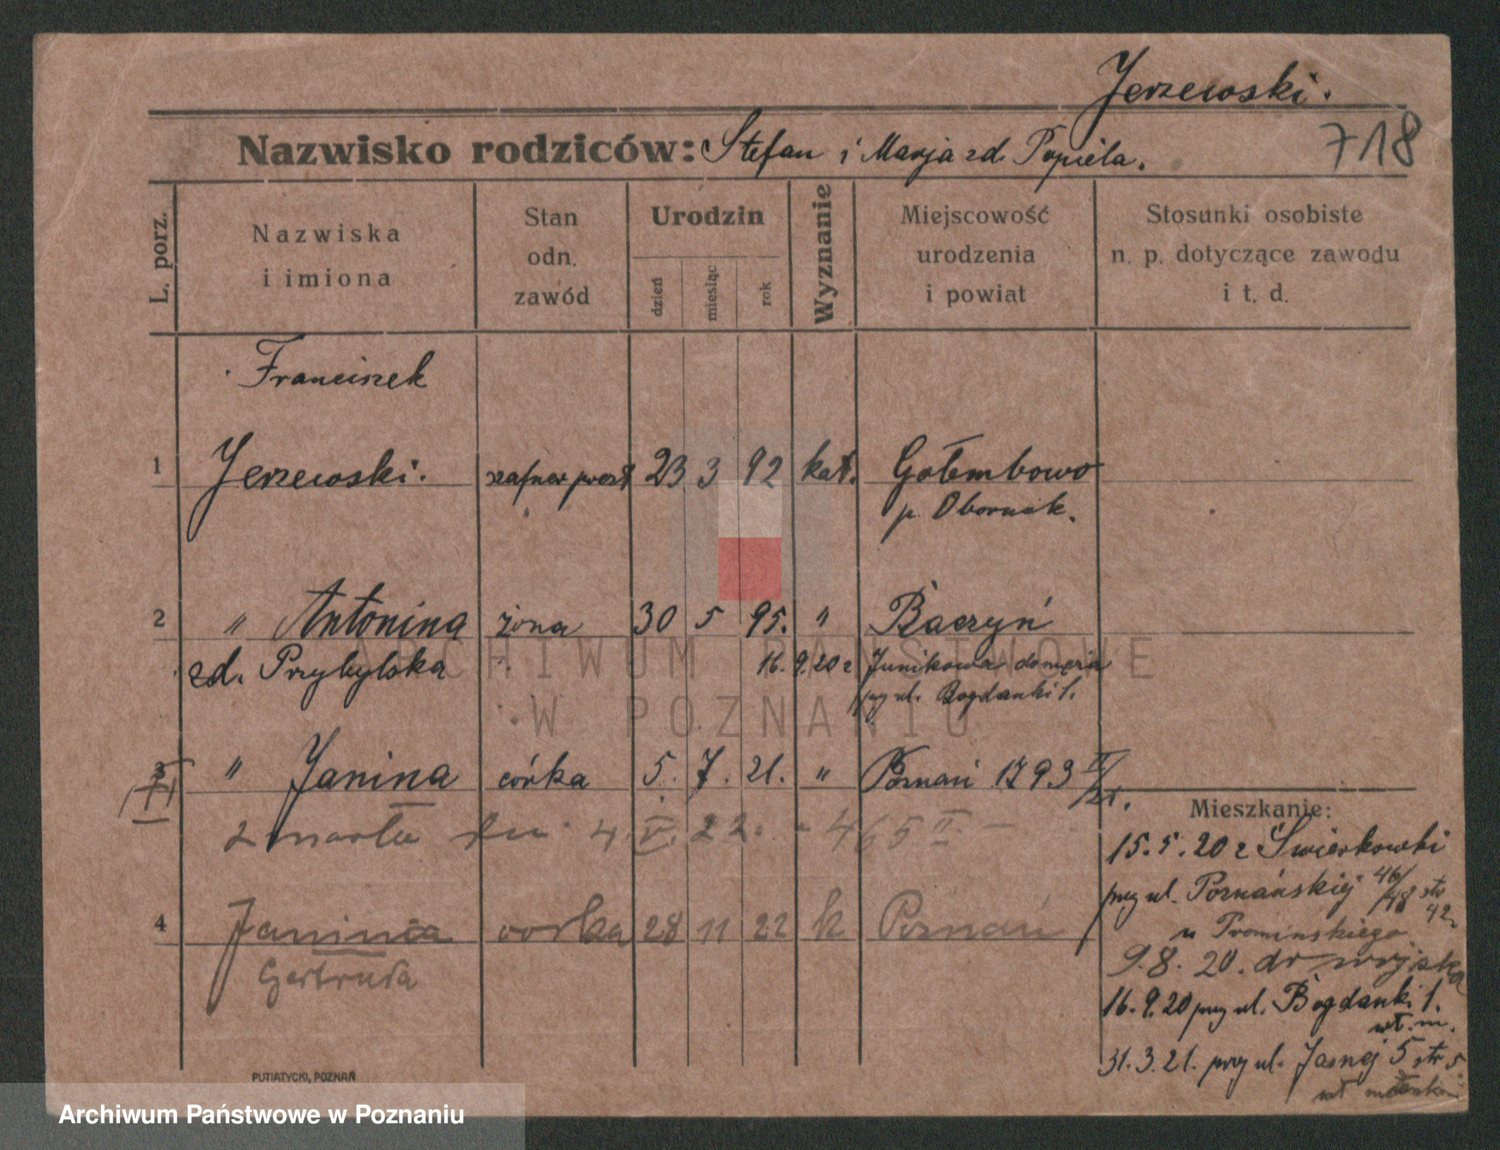 Jerzewski.
Nazwisko rodziców: Stefan i Marja zd. Popiela.
718
L. porz.
Nazwiska
i imiona
Stan
odn.
zawód
Urodzin
dzień
miesiąc
rok
Wyznanie
Miejscowość
urodzenia
i powiat
Stosunki osobiste
n. p. dotyczące zawodu
i t. d.
Franciszek
1 Jerzewski. szafner poczt 23 3 92 kat. Gołembowo
p. Obornik.
2 " Antonina żona 30 5 95. " Baczyń
zd. Przybylska 16. 9. 20 z Junikowa
przy ul. Bogdanki 1.
3 " Janina córka 5. 7. 21. " Poznań 1793 II/21.
zmarła dn. 4. V. 22. - 465 II. -
4 Janina corka 28 11 22 k Poznań
Gertruda
Mieszkanie:
15. 5. 20 z Świerkowki
przy ul. Poznańskiej 46/48 str 42
u Promińskiego
9. 8. 20. do wojska
16. 9. 20 przy ul. Bogdanki 1.
wł. m.
31. 3. 21. przy ul. Jasnej 5 str 5.
PUTIATYCKI, POZNAŃ
ARCHIWUM PAŃSTWOWE
W POZNANIU
Archiwum Państwowe w Poznaniu